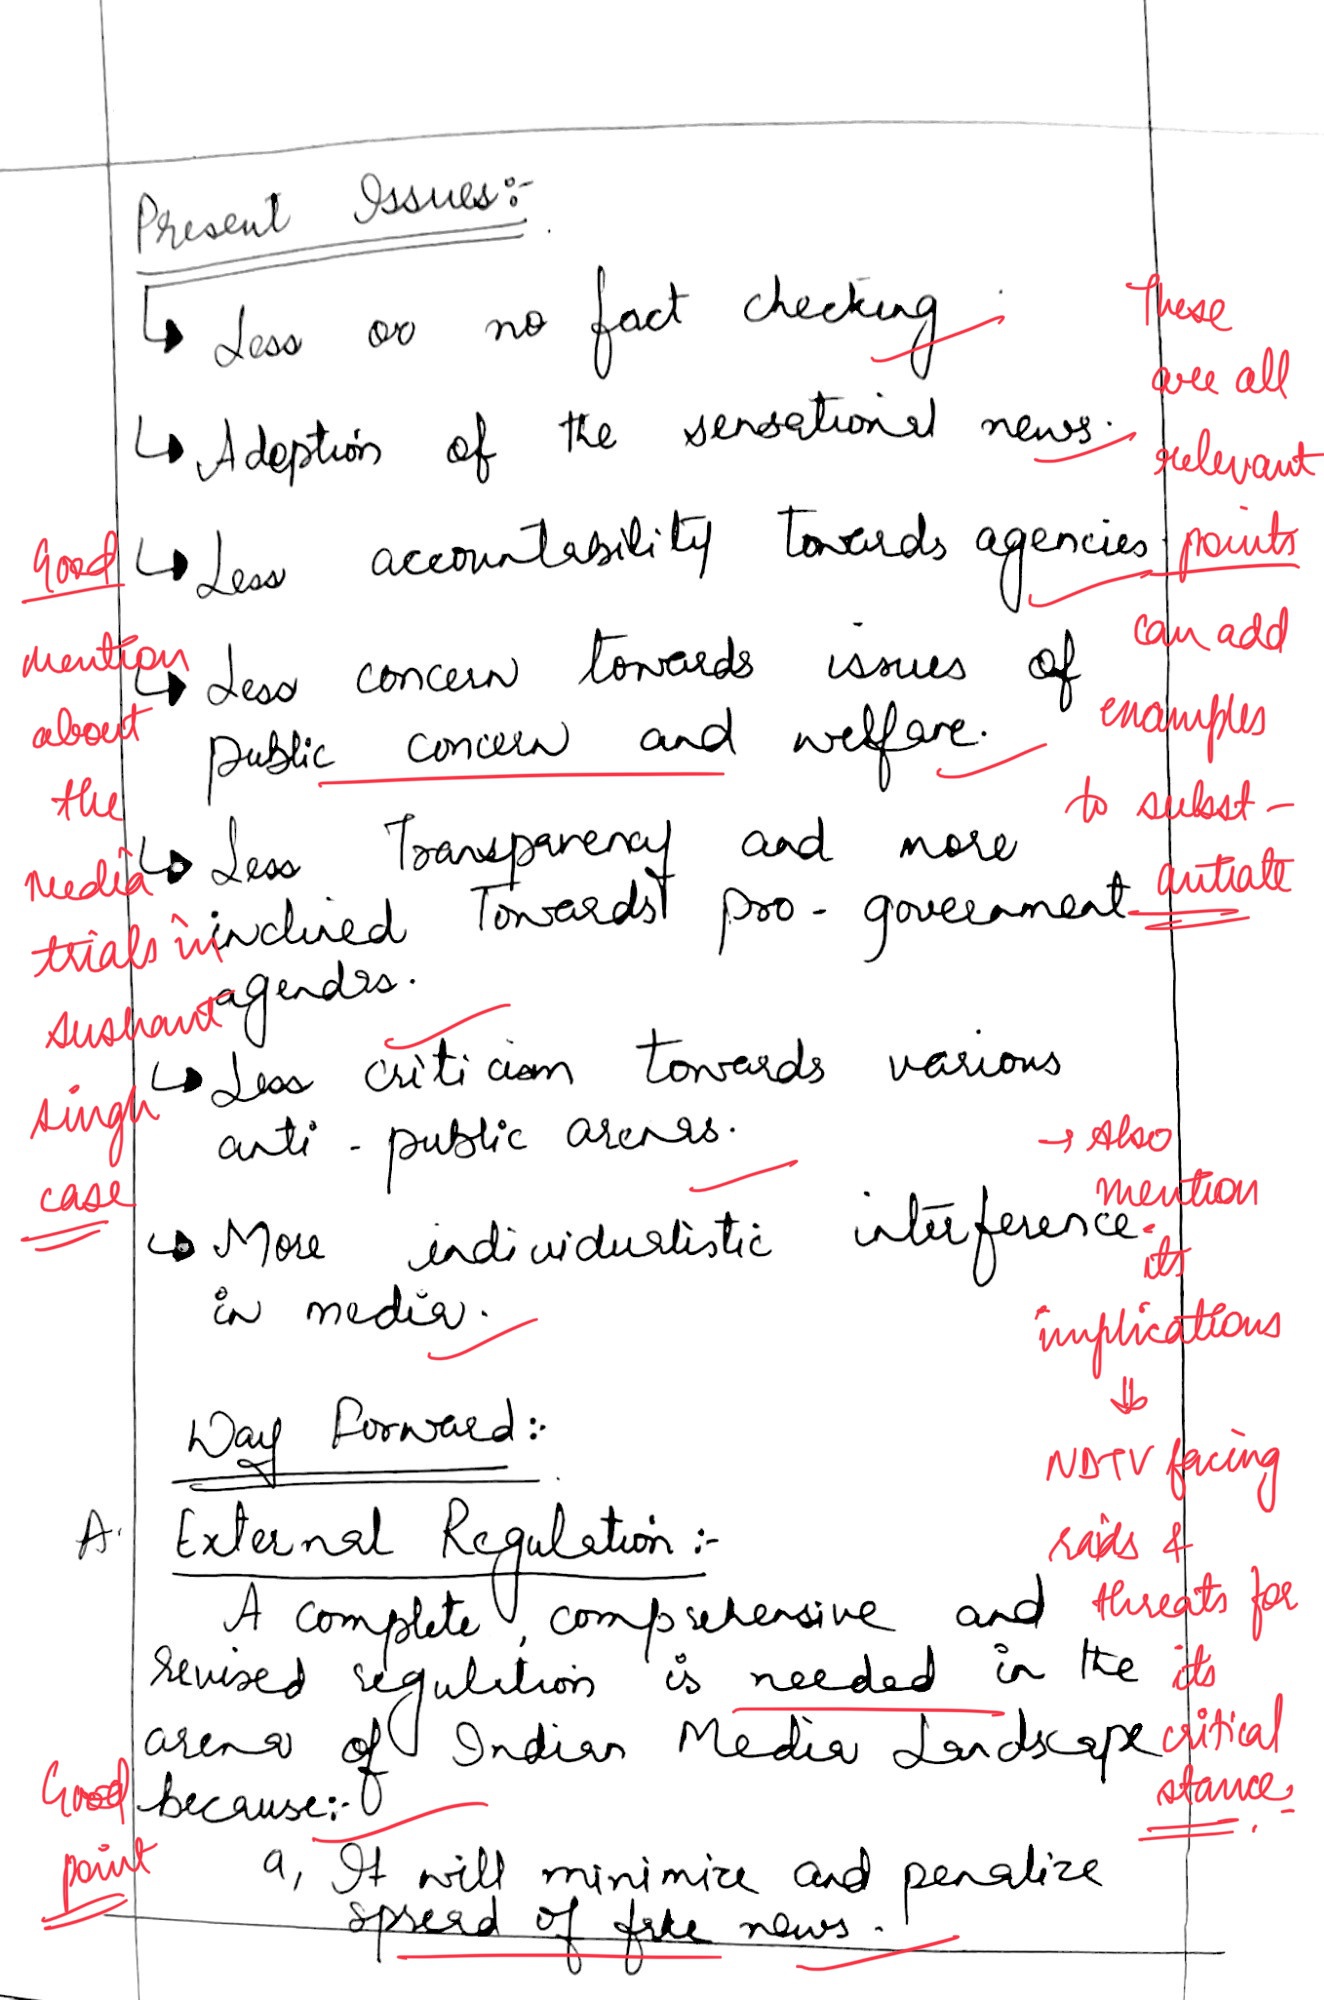 Present Issues:-
↳ Less or no fact checking
↳ Adoption of the sensational news.
↳ Less accountability towards agencies
↳ Less concern towards issues of
public concern and welfare.
↳ Less Transparency and more
inclined Towards pro - government
agendas.
↳ Less criticism towards various
anti - public arenas.
↳ More individualistic interference
in media.
Way Forward:-
A. External Regulation:-
A complete, comprehensive and
revised regulation is needed in the
arena of Indian Media Landscape
because:-
a, It will minimize and penalize
spread of fake news.
Good
mention
about
the
Media
trials in
Sushant
Singh
case
Good
point
These
are all
relevant
points
can add
examples
to subst-
antiate
→ Also
mention
its
implications
⇓
NDTV facing
raids &
threats for
its
critical
stance.